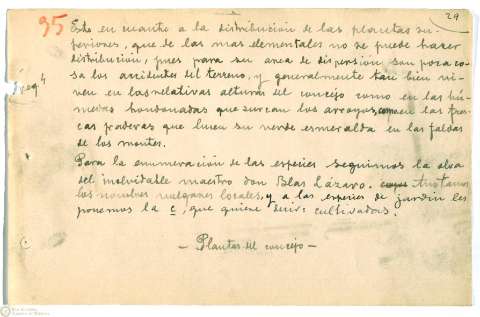 95
29
Esto en cuanto a la distribución de las plantas su-
periores, que de las mas elementales no se puede hacer
distribución, pues para su area de dispersión son poca co-
sa los accidentes del terreno, y generalmente tan bien vi-
ven en las relativas alturas del concejo como en las hú-
medas hondonadas que surcan los arroyos, en las fres-
cas praderas que lucen su verde esmeralda en las faldas
de los montes.
Para la enumeración de las especies seguimos la obra
del inolvidable maestro don Blas Lázaro.
los nombres vulgares locales, y a las especies de jardín les
ponemos la c, que quiere decir cultivadas.
- Plantas del concejo -